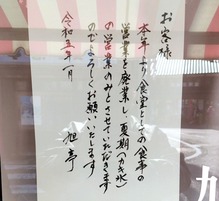 お客様
本年より食堂としての食事の
営業を廃業し、夏期(かき氷)
の営業のみとさせていただきます
のでよろしくお願いいたします
令和五年一月
旭亭